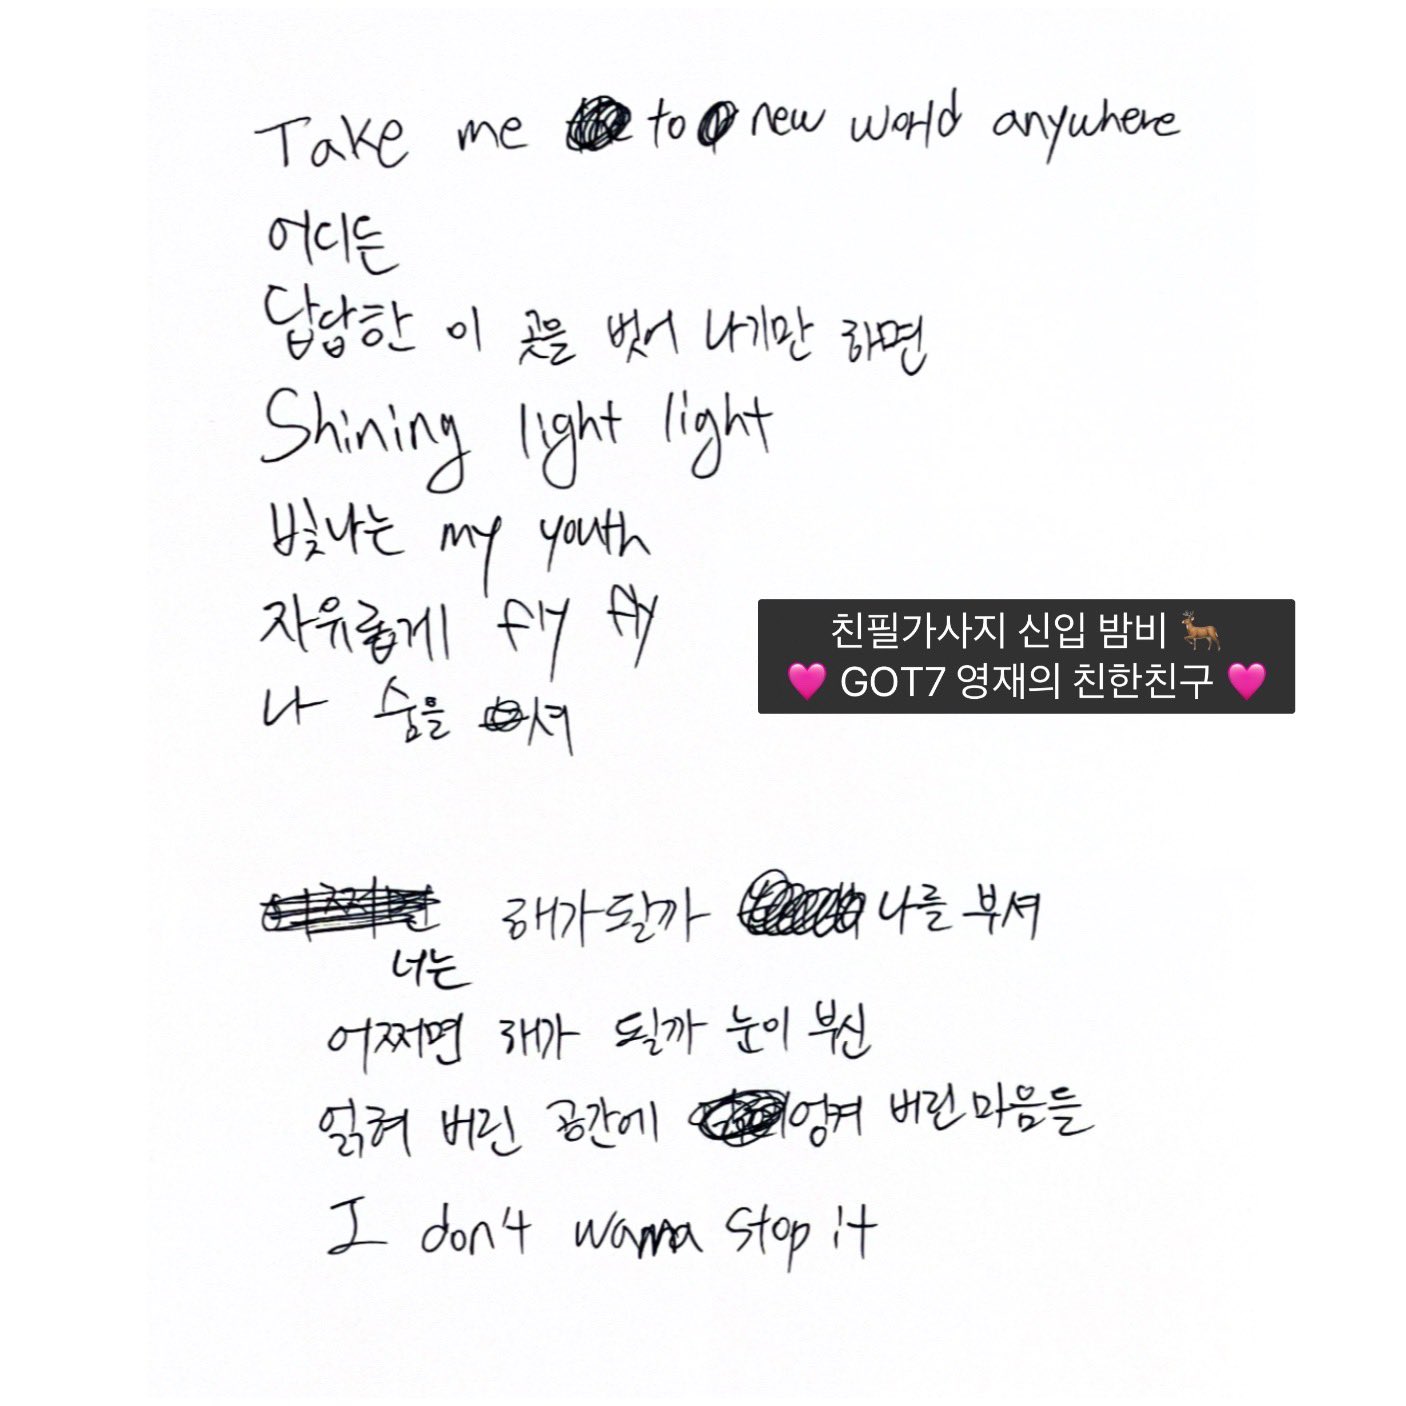 Take me to new world anywhere
어디든
답답한 이 곳을 벗어 나기만 하면
Shining light light
빛나는 my youth
자유롭게 fly fly
친필가사지 신입 밤비 🦌
🩷 GOT7 영재의 친한친구 🩷
나 숨을 셔
해가 될까 나를 부셔
너는
어쩌면 해가 될까 눈이 부신
얽혀 버린 공간에 엉켜 버린 마음들
I don't wanna stop it